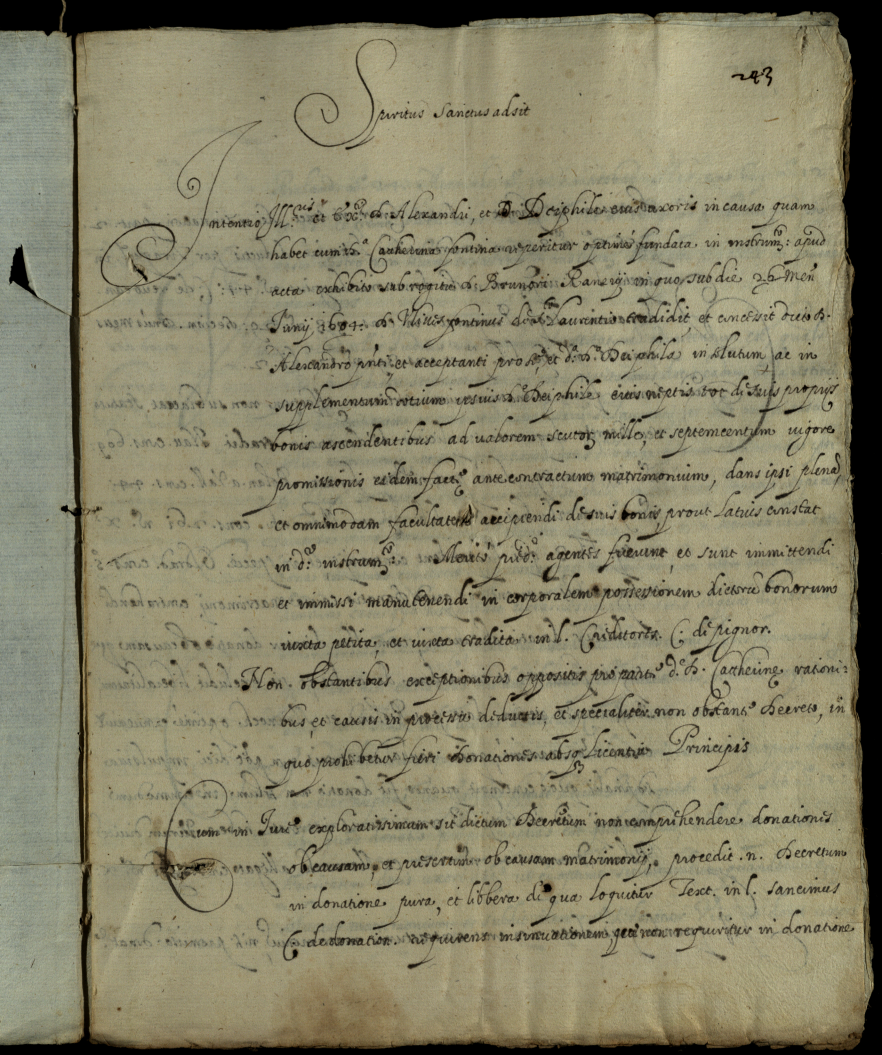 243
Spiritus Sanctus adsit
Intentio Ill.ris et D. Alexandri, et D. Deiphile eius uxoris in causa quam
habet cum D.a Catherina fontina reperitur optime fundata in instrum.to apud
acta exhibito sub rogitu D. Brunorij Ranerij in quo sub die 26 Men
Junij 1604 D. Ulises fontinus de S.to Laurentio tradidit, et concessit dicto D.
Alexandro pnti et acceptanti pro se, et d.a D.a Deiphila in solutum, ac in
supplementum dotium ipsius D. Deiphile eius neptis tot de suis proprijs
bonis ascendentibus ad valorem scutor. mille, et septemcentum vigore
promissionis eidem facte ante contractum matrimonium, dans ipsi plenā,
et omnimodam facultatem accipiendi de suis bonis prout latius constat
in d.o instrum.to. Merito pred. agentes fuerunt, et sunt immittendi
et immissi manutenendi in corporalem possessionem dictorū bonorum
iuxta petita, et iuxta tradita in l. Creditores C. de pignor.
Non obstantibus exceptionibus oppositis pro parte d.e D. Catherine rationi-
bus, et causis in processu deductis, et specialiter non obstante Decreto, in
quo prohibetur fieri Donationes absq Licentia Principis
Cum in Jure exploratissimum sit dictum Decretum non comprehendere donationes
ob causam, et presertim ob causam matrimonij, procedit .n. Decretum
in donatione pura, et libbera de qua loquitur Text. in l. sancimus
C. de donation. requirens insinuationem, que non requiritur in donatione